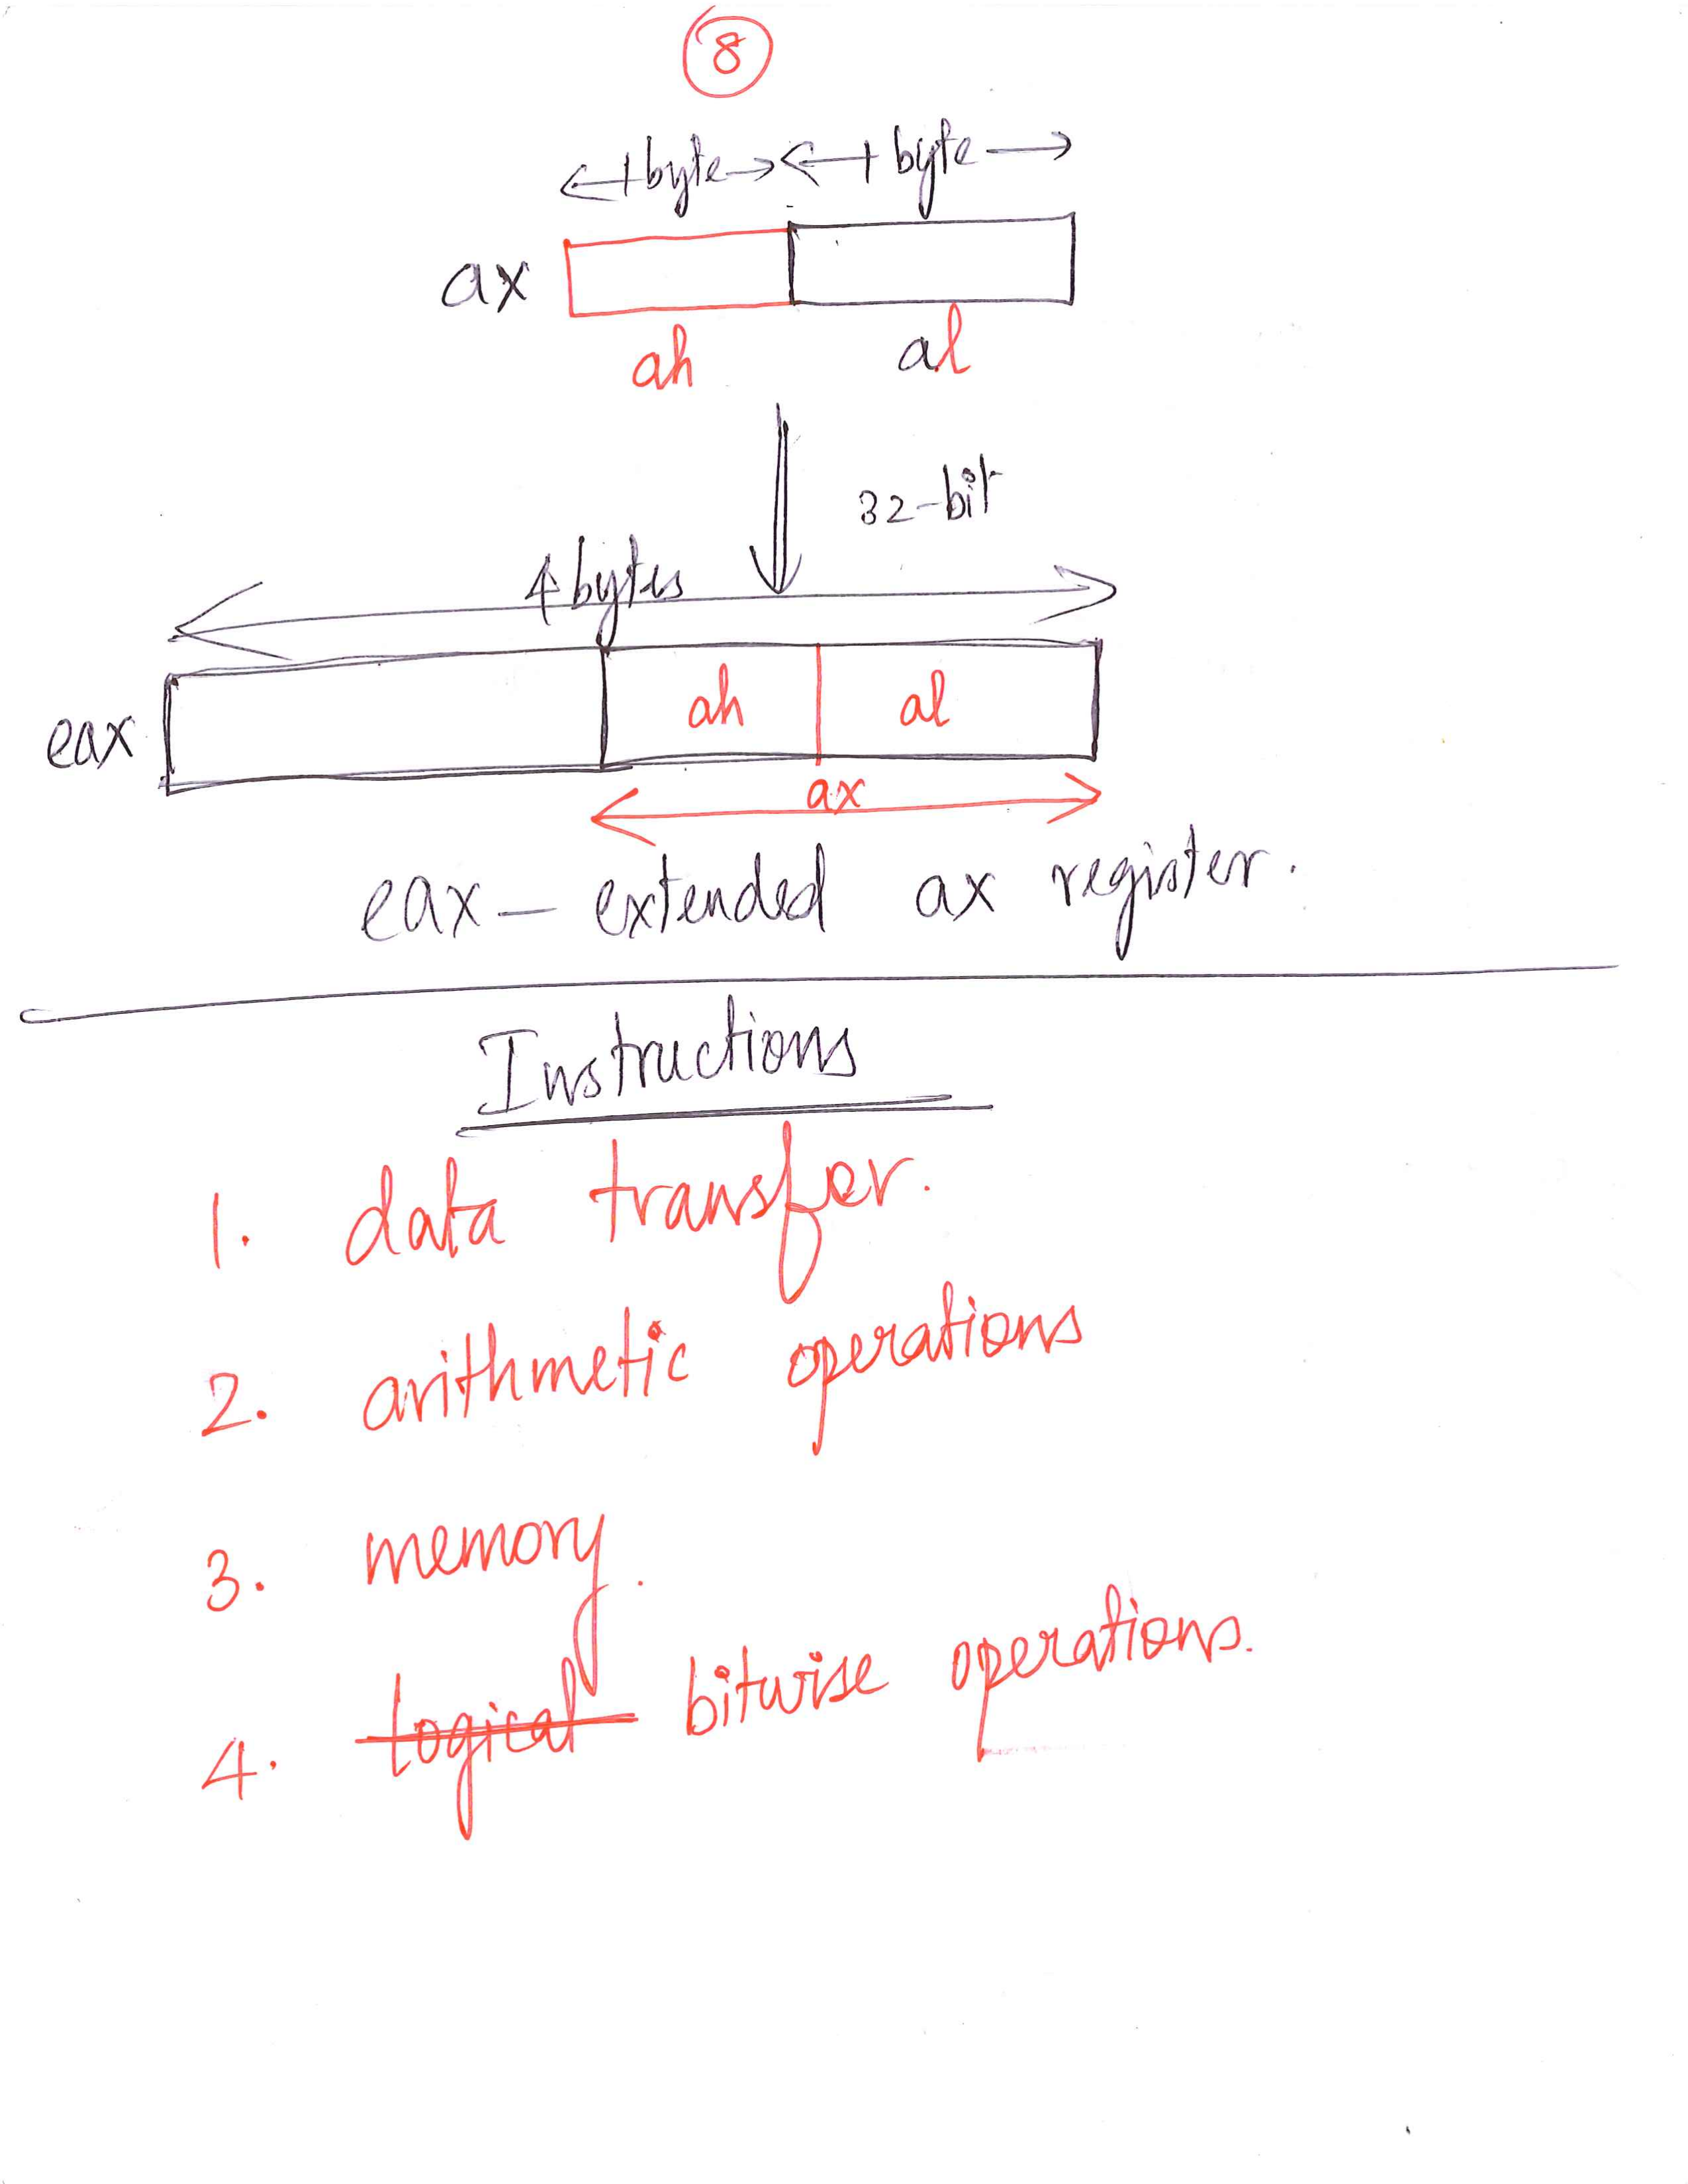 8
1 byte 1 byte
ax
ah al
32-bit
4 bytes
eax ah al
ax
eax – extended ax register.
Instructions
1. data transfer.
2. arithmetic operations
3. memory.
4. logical bitwise operations.